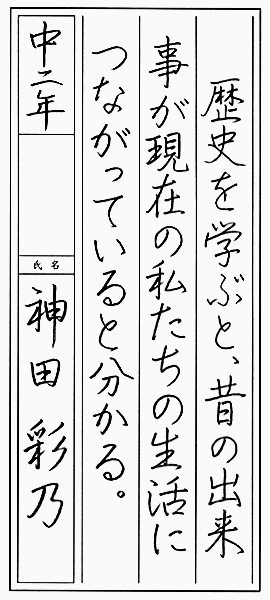 歴史を学ぶと、昔の出来
事が現在の私たちの生活に
つながっていると分かる。
中二年
氏名
神田 彩乃